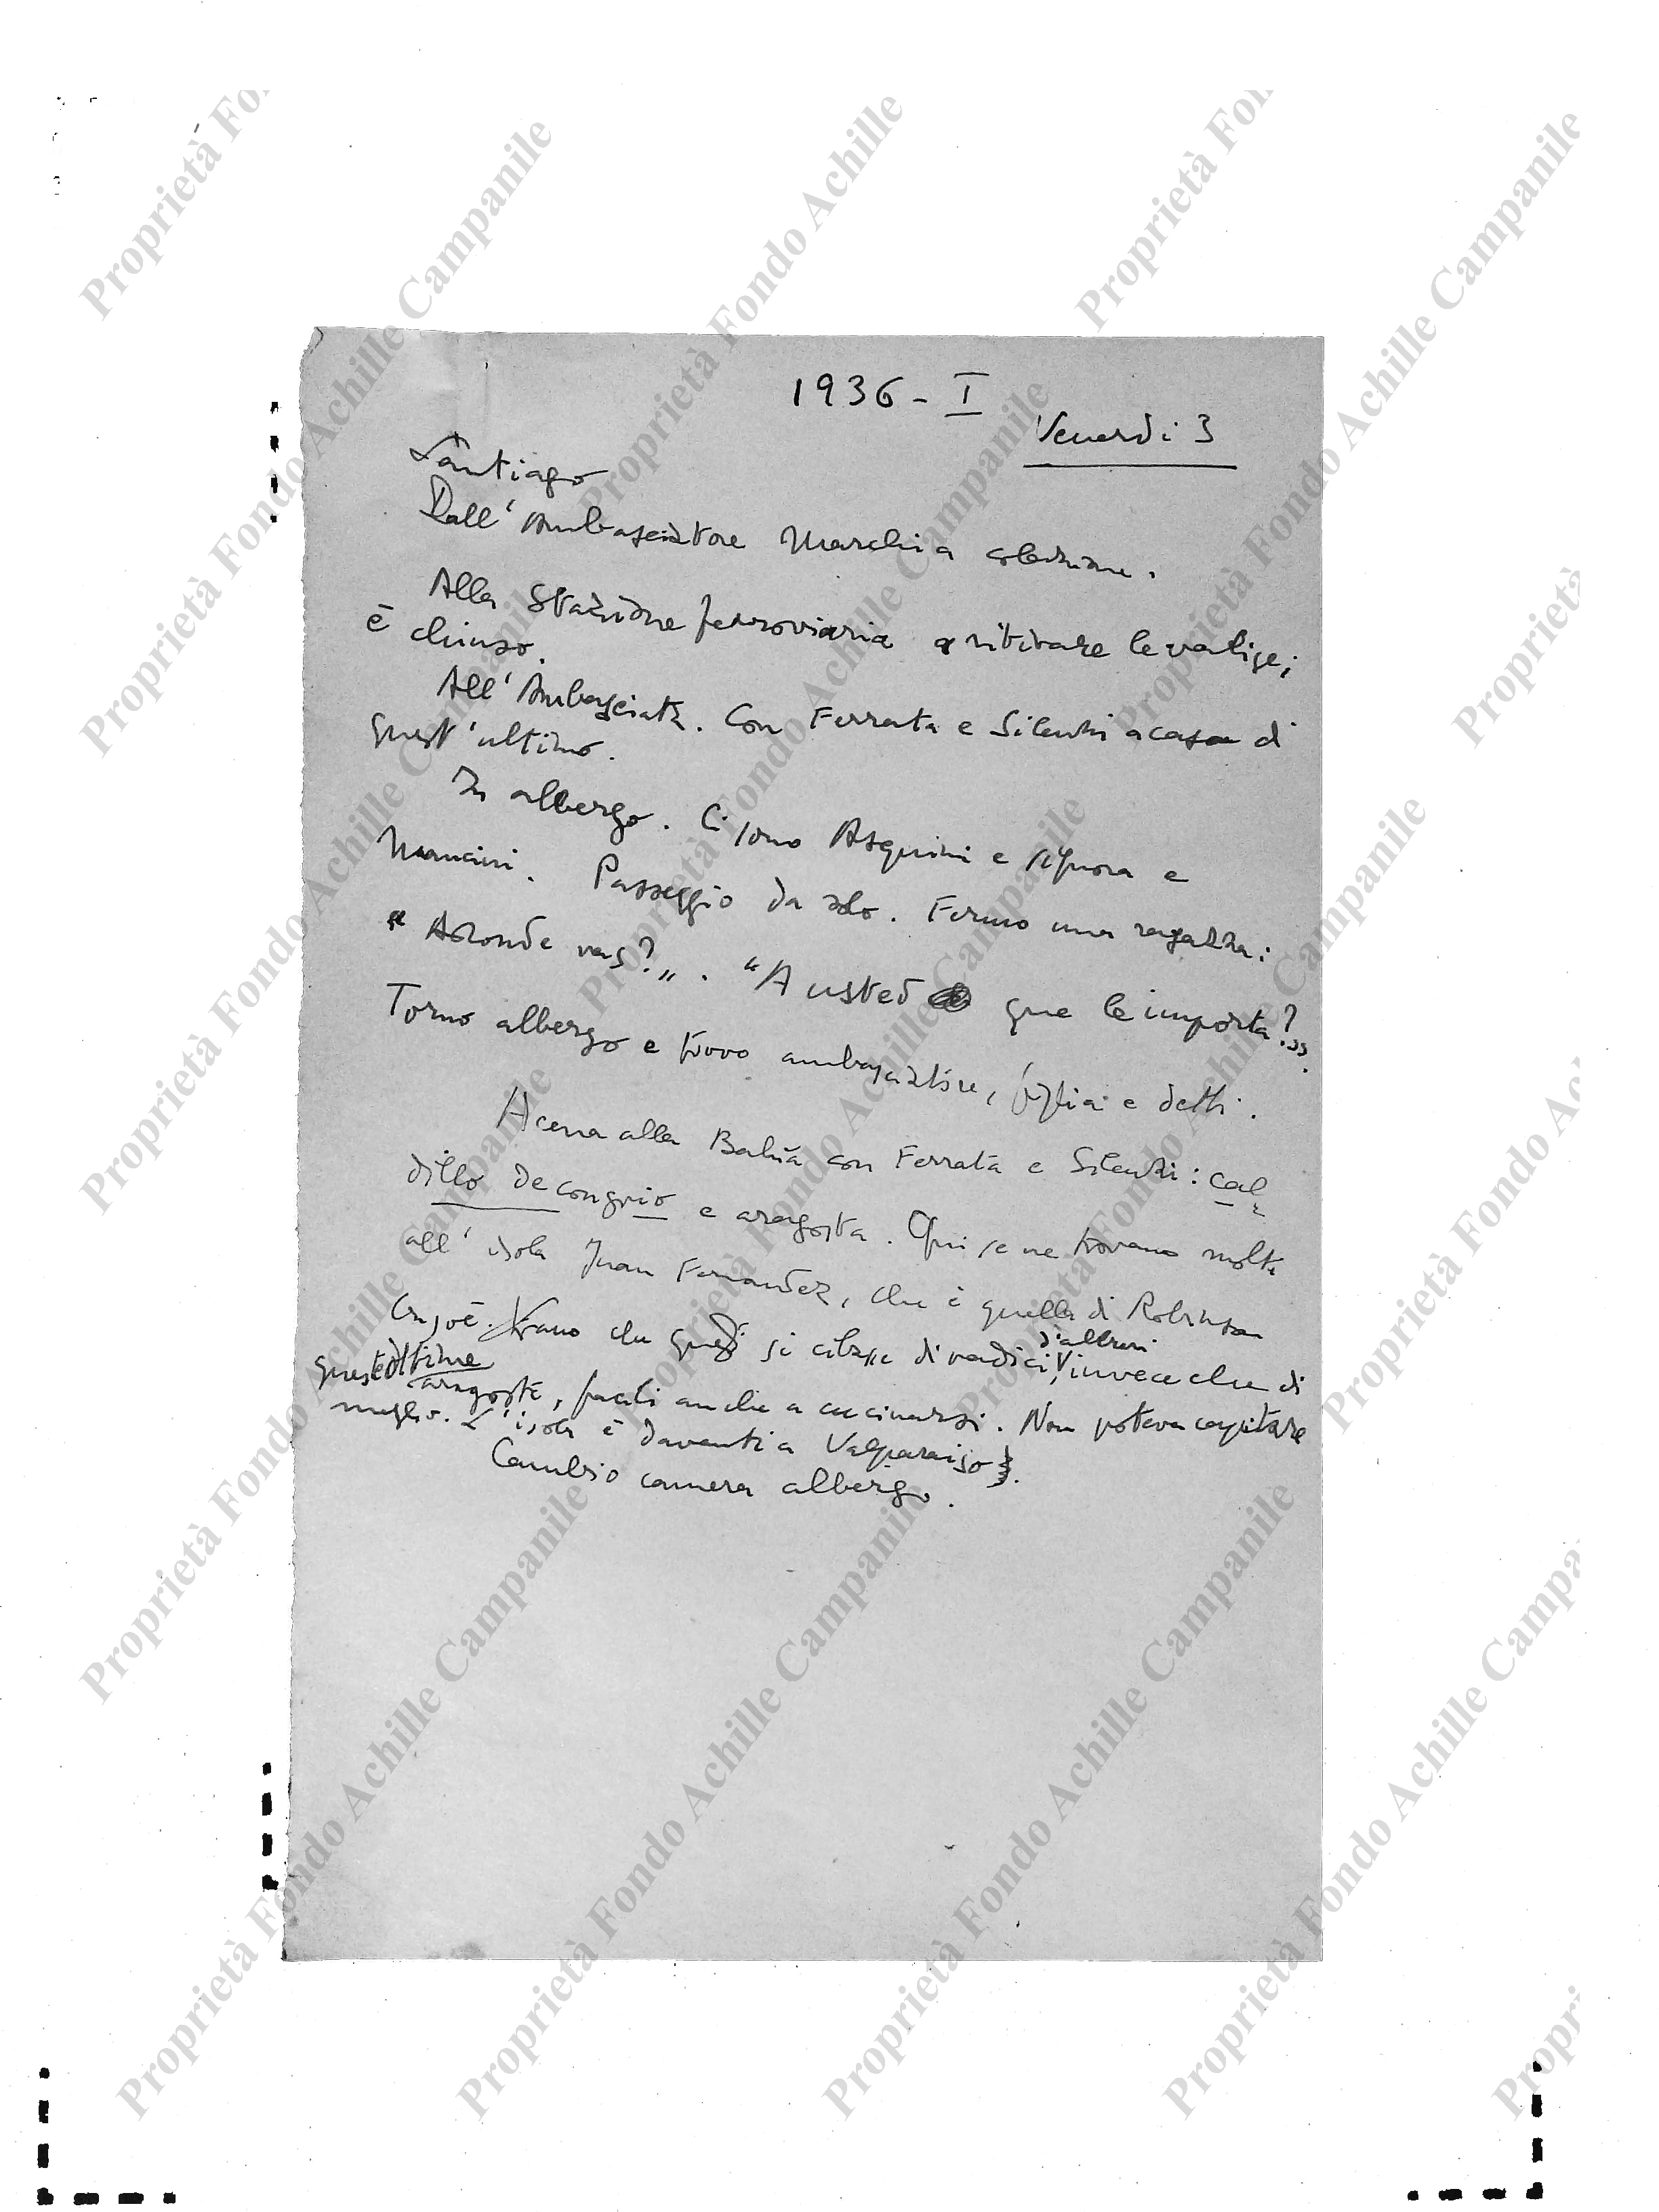 1936 - I
Venerdì 3
Santiago
Dall'Ambasciatore Marchi a colazione.
Alla stazione ferroviaria a ritirare le valige;
è chiuso.
All'Ambasciata. Con Ferrata e Silenzi a casa di
quest'ultimo.
In albergo. Ci sono Asquini e signora e
Mancini. Passeggio da solo. Fermo una ragazza:
"Adonde vas?". "A usted que le importa?".
Torno albergo e trovo ambasciatore, figlia e detti.
A cena alla Bahia con Ferrata e Silenzi: cal=
dillo de congrio e aragosta. Qui se ne trovano molte
all'isola Juan Fernandez, che è quella di Robinson
Crusoè. Strano che questi si cibasse di radici d'alberi, invece che di
queste ottime aragoste, facili anche a cucinarsi. Non poteva capitare
meglio. L'isola è davanti a Valparaiso.
Cambio camera albergo.
Proprietà Fondo Achille Campanile